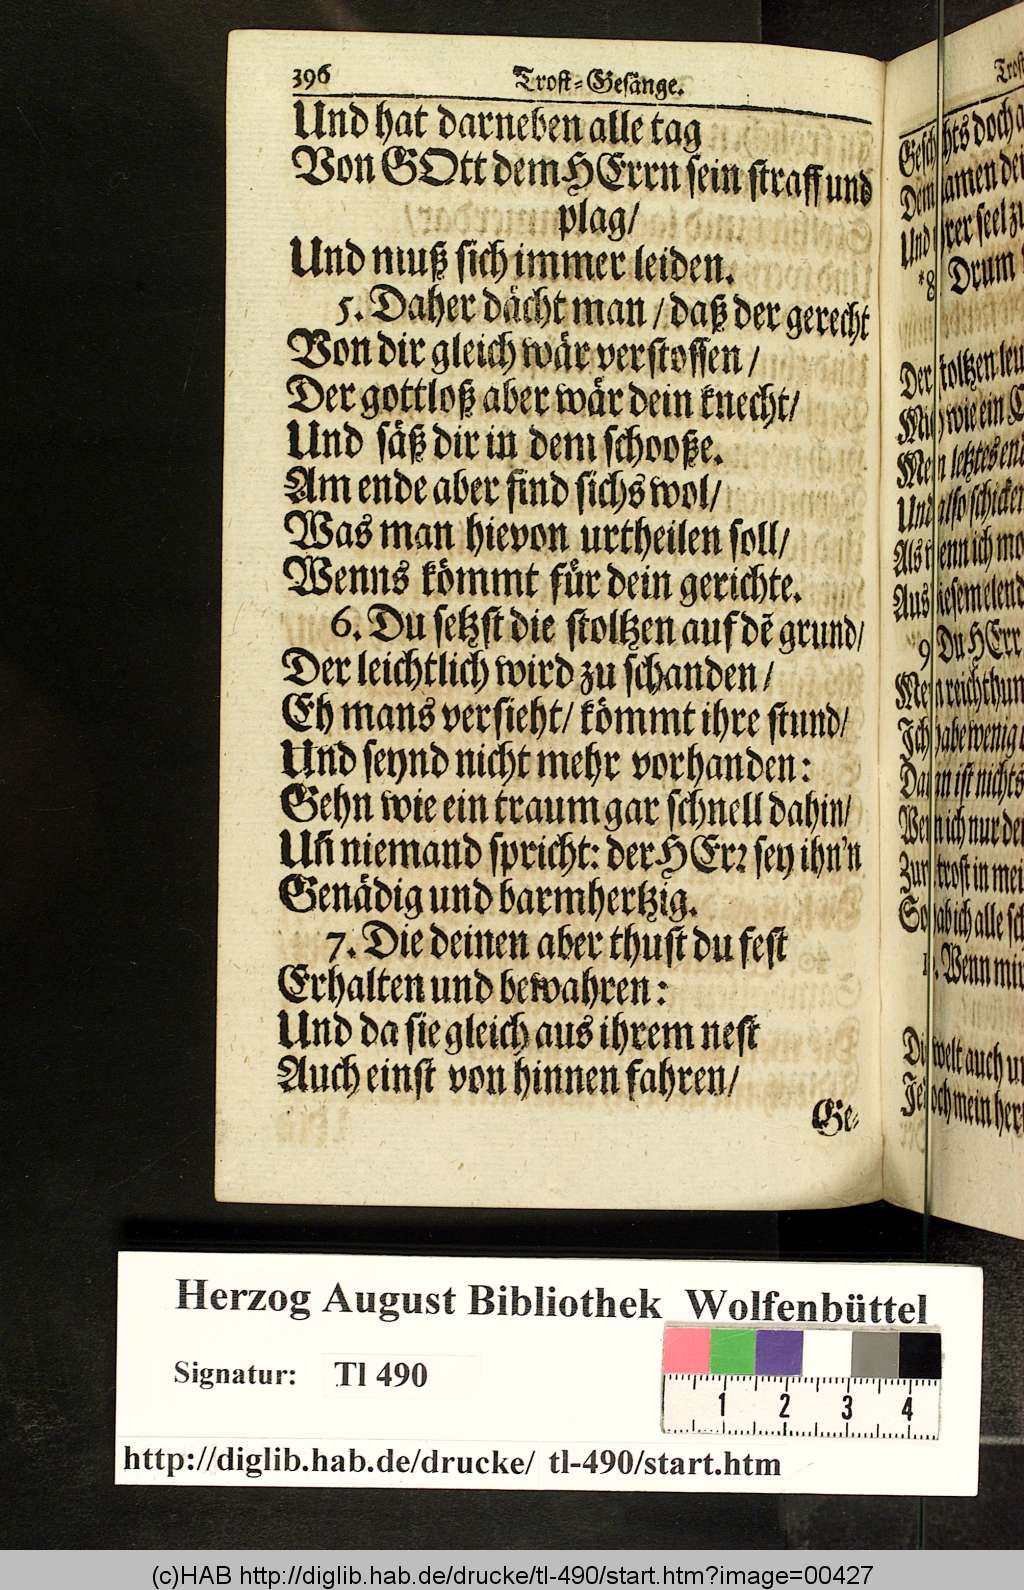 396 Trost-Gesänge.
Und hat darneben alle tag
Von GOtt dem HErrn sein straff und
plag/
Und muß sich immer leiden.
5. Daher dächt man / daß der gerecht
Von dir gleich wär verstossen /
Der gottloß aber wär dein knecht/
Und säß dir in dem schooße.
Am ende aber find sichs wol/
Was man hievon urtheilen soll/
Wenns kömmt für dein gerichte.
6. Du setzst die stoltzen auf dẽ grund/
Der leichtlich wird zu schanden /
Eh mans versieht/ kömmt ihre stund/
Und seynd nicht mehr vorhanden:
Gehn wie ein traum gar schnell dahin/
Uñ niemand spricht: der HErꝛ sey ihn'n
Genädig und barmhertzig.
7. Die deinen aber thust du fest
Erhalten und bewahren:
Und da sie gleich aus ihrem nest
Auch einst von hinnen fahren/
Ge-
doch
Und
*8 Drum
Der stoltzen
wie ein
letztes
Und also
Als wenn ich
Aus diesem elend
9 Du HErr
reichthum
Ich habe wenig
Dann ist nichts
Wenn ich nur
Zum trost in
So hab ich alle
Wenn mir
Die welt auch
mein
Herzog August Bibliothek Wolfenbüttel
Signatur: Tl 490
1 2 3 4
http://diglib.hab.de/drucke/ tl-490/start.htm
(c)HAB http://diglib.hab.de/drucke/tl-490/start.htm?image=00427